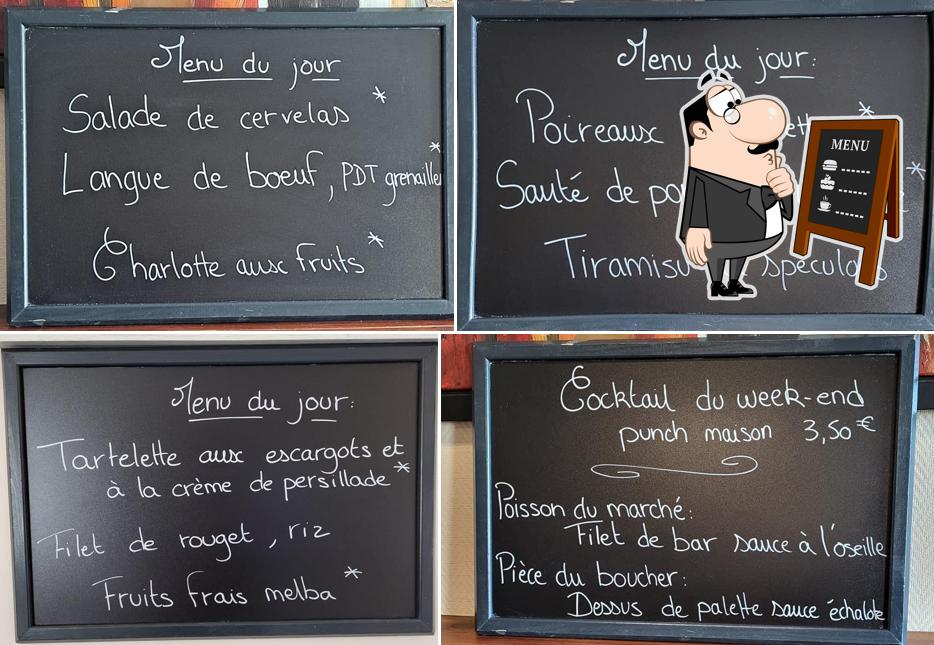 Menu du jour
Salade de cervelas *
Langue de boeuf, PDT grenaille *
Charlotte aux fruits *
Menu du jour:
Poireaux *
Sauté de *
Tiramisu
MENU
Menu du jour:
Tartelette aux escargots et
à la crème de persillade *
Filet de rouget, riz
Fruits frais melba *
Cocktail du week-end
punch maison 3,50€
Poisson du marché:
Filet de bar sauce à l'oseille
Pièce du boucher:
Dessus de palette sauce échalote